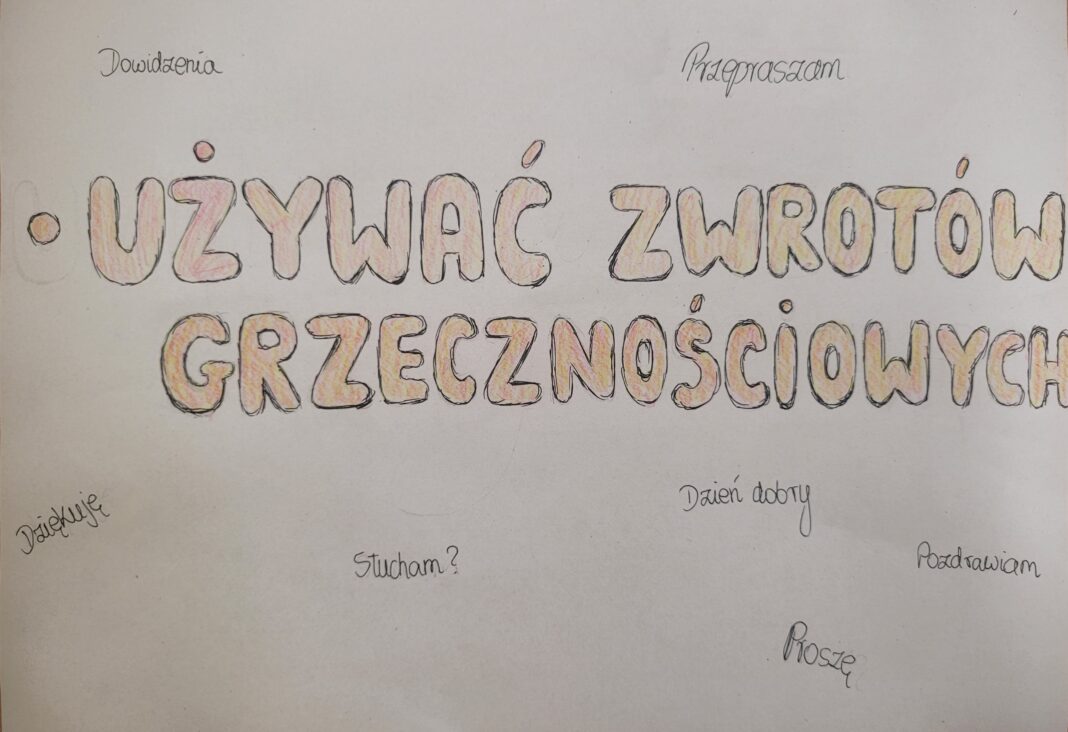 Dowidzenia
Przepraszam
• UŻYWAĆ ZWROTÓW
GRZECZNOŚCIOWYCH
Dziękuję
Dzień dobry
Słucham?
Pozdrawiam
Proszę